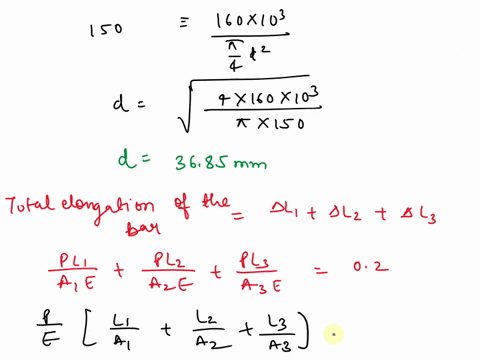 150 = 160×10³ / (π/4 d²)
d = √(4×160×10³ / (π×150))
d = 36.85 mm
Total elongation of the bar = ΔL₁ + ΔL₂ + ΔL₃
PL₁/A₁E + PL₂/A₂E + PL₃/A₃E = 0.2
P/E [ L₁/A₁ + L₂/A₂ + L₃/A₃ )